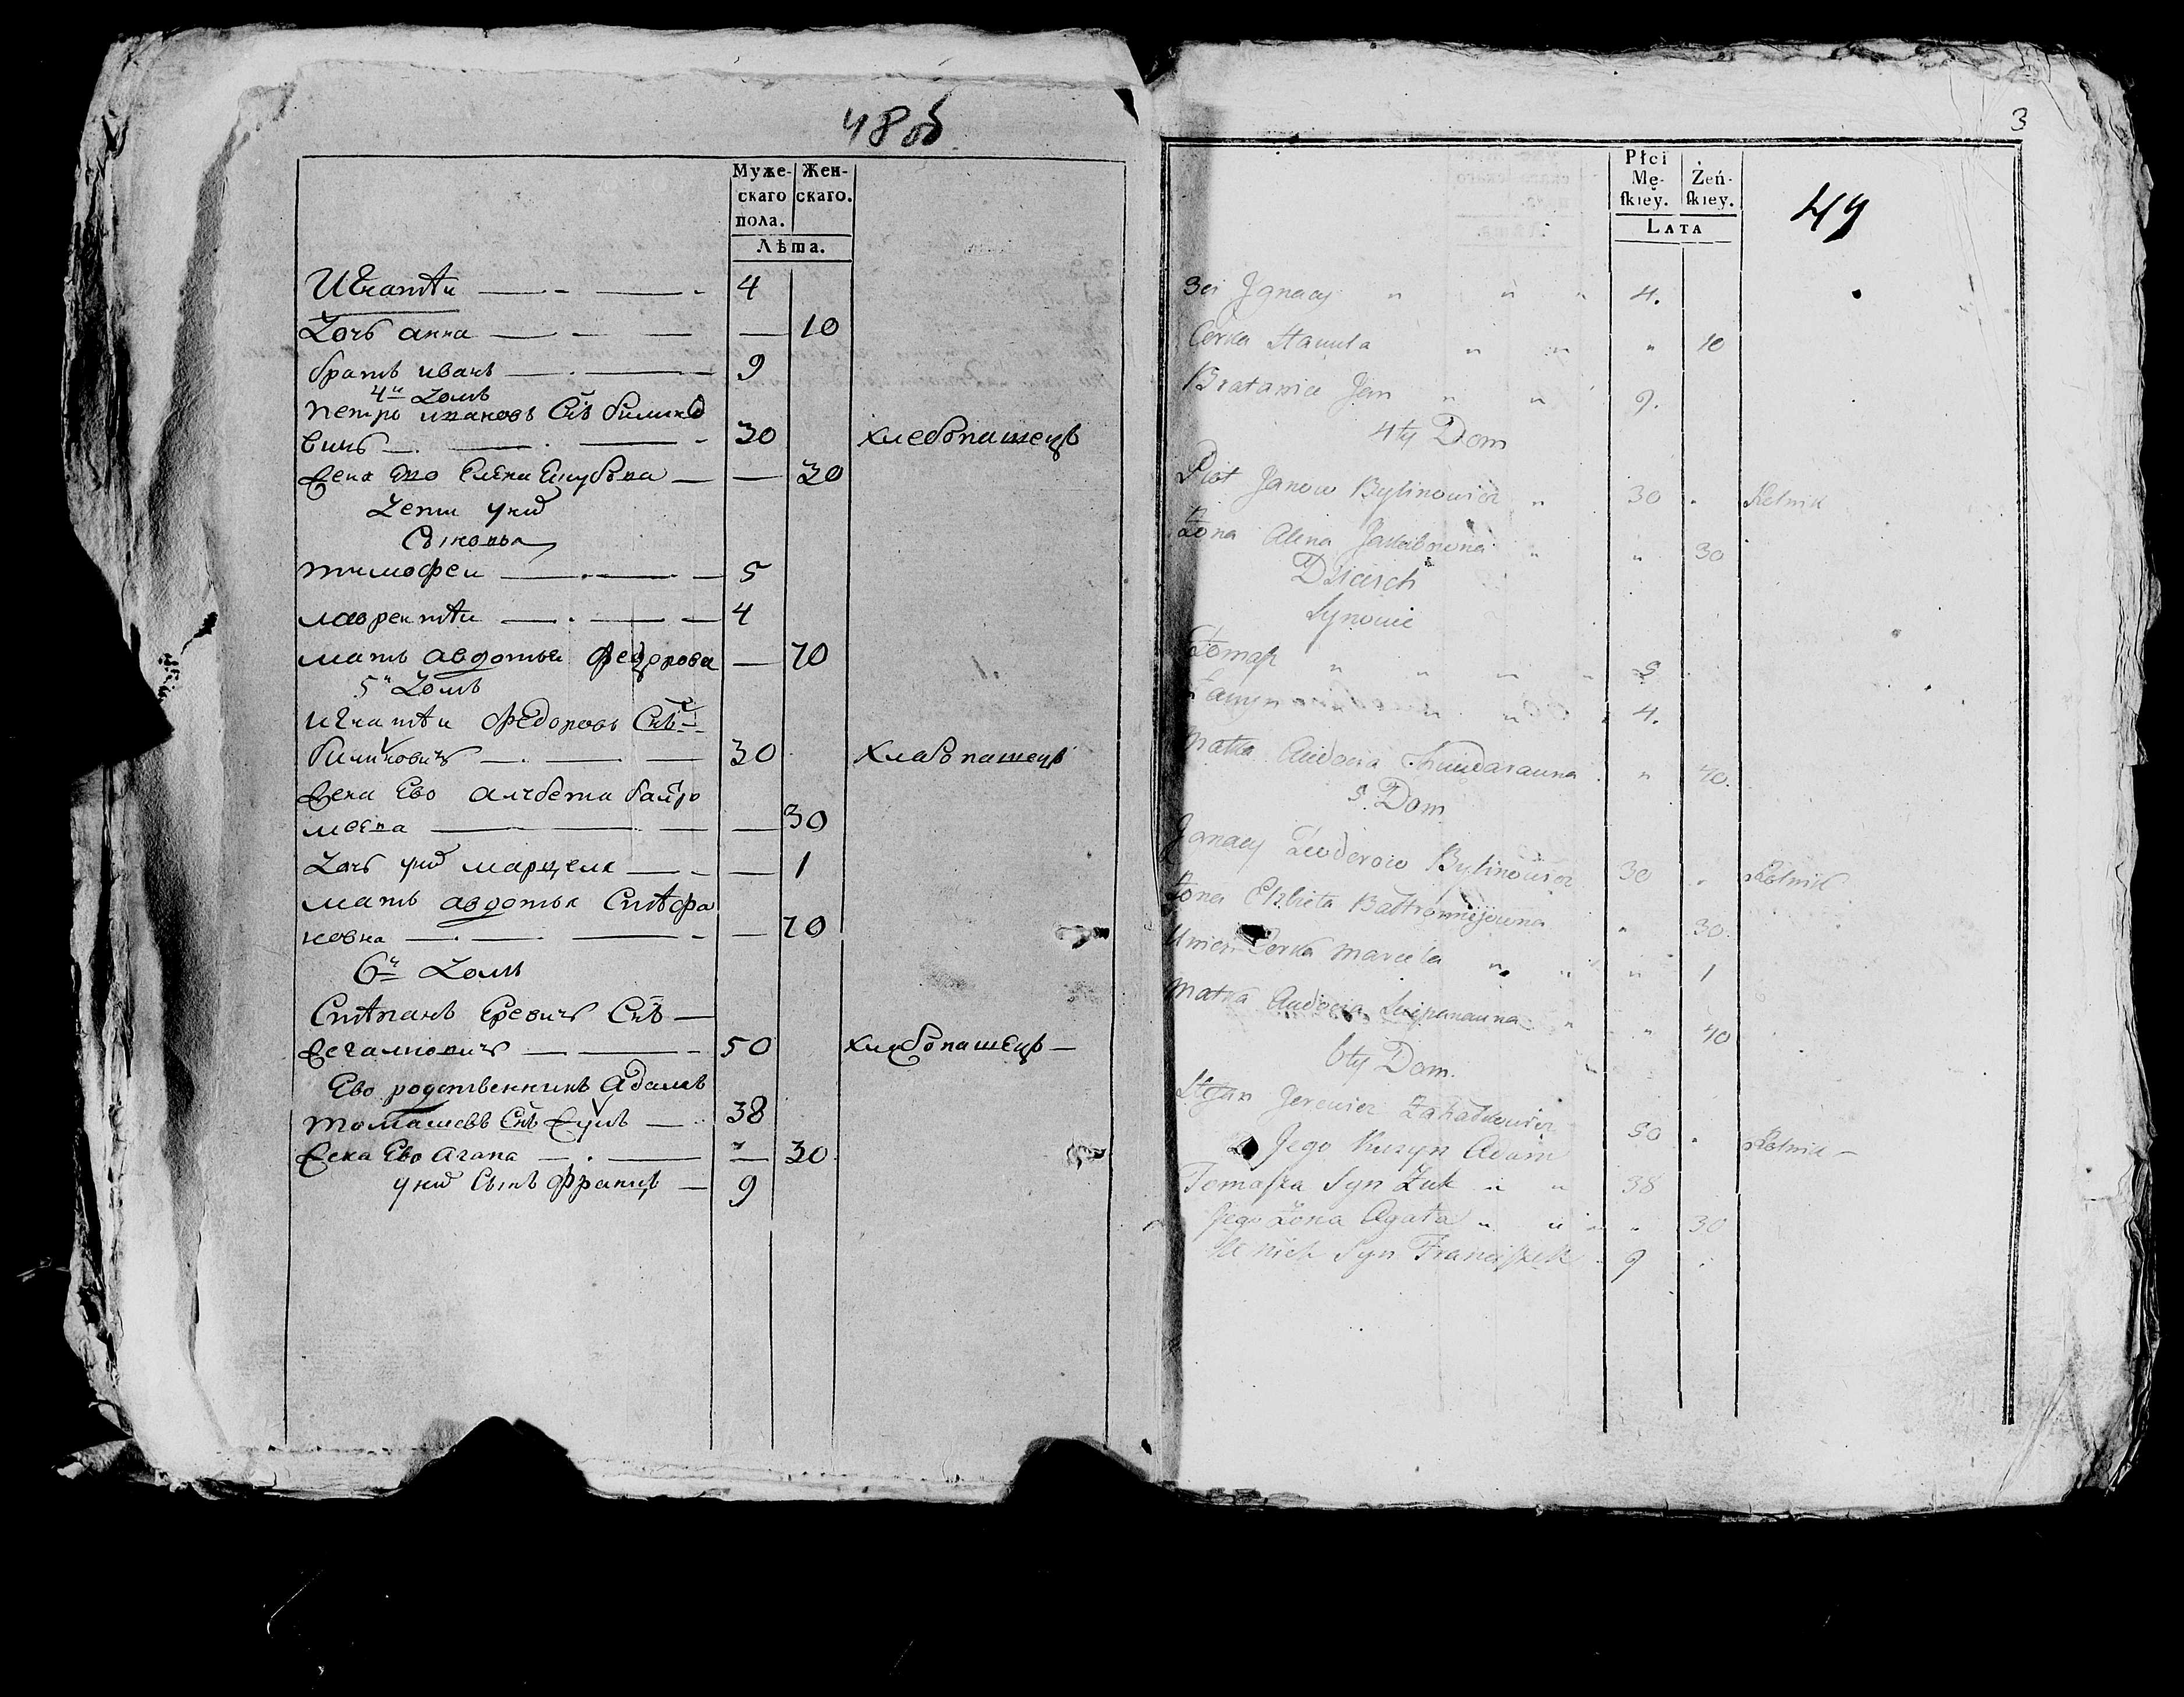 48 об
Муже-
скаго
пола.
Жен-
скаго.
Лѣта.
Игнатѣи 4
Дочь анна — 10
братъ иванъ 9
4й домъ
Петръ ивановъ Снъ билино
вичъ 30 хлебопашецъ
жена Ево Елена — 30
дети у них
Сыновья
тимофеи 5
лаврентѣи 4
мать авдотья федорова — 70
5й домъ
игнатѣи федоровъ Снъ
билиновичъ 30 хлебопашецъ
жена Ево алчбета балтро
меева — 30
дочь у них марцела — 1
мать авдотья Стѣфа
новна — 70
6й домъ
Стѣпанъ Еревичъ Снъ
50 хлебопашецъ
Ево родственникъ адамъ
томашевъ Снъ жукъ 38
жена Ево агапа — 30
у них Сынъ францъ 9
3
49
Płci
Mę-
skiey.
Żeń-
skiey.
LATA
3ci Jgnacy 4.
Corka 10
Jan 9.
4ty Dom
Piot Janow Bylinowicz 30 Rolnik
Żona Alena Jakubowna 30
Dzieich
Synowie
5
4.
Matka Audocia 70.
5. Dom
Jgnacy Bylinowicz 30 Rolnik
Żona Elzbieta Bałtromiejowna 30.
Unich Corka Marcela 1
Matka Audocia 70
6ty Dom.
Stefan Jerewicz 50 Rolnik
Jego Kuzyn Adam
Tomaszka Syn Żuk 38
Jego Żona Agata 30
U nich Syn Franciszek 9